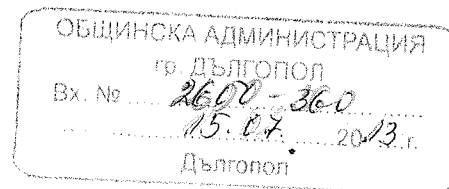 ОБЩИНСКА АДМИНИСТРАЦИЯ
гр. ДЪЛГОПОЛ
Вх. № ..... 2600-360
..................15.07. .......2013.г.
Дългопол